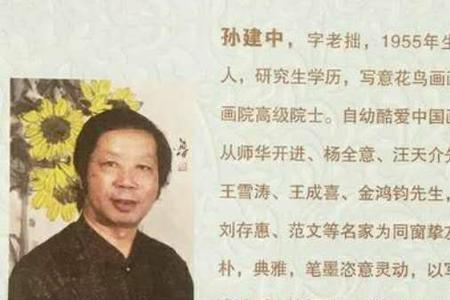 孙建中，字老拙，1955年生
人，研究生学历，写意花鸟画
画院高级院士。自幼酷爱中国画
从师华开进、杨全意、汪天介先
王雪涛、王成喜、金鸿钧先生，
刘存惠、范文等名家为同窗挚友
朴，典雅，笔墨恣意灵动，以写